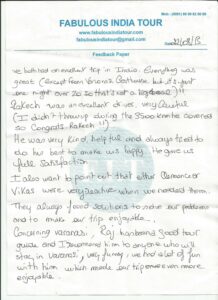 Mob : (0091) 98 29 62 96 89
FABULOUS INDIA TOUR
www.fabulousindiatour.com
fabulousindiatour@gmail.com
Feedback Paper
We both had an excellent trip in India. Everything was
great (except from Varanasi but it's just
one night over 20 so that's not a
Rakech was an excellent driver, very careful
(I didn't throw up during the 3500 kms he covered
so Congrats Rakesh !!)
He was very kind, helpful and always tried to
do his best to make us happy. He gave us
full satisfaction
I also want to point out that either
Vikas were very reactive when we needed them.
They always found solutions to solve our problems
and to make our trip enjoyable.
Concerning Varanasi, Raj has been a good tour
guide and I recommend him to anyone who will
stay in Varanasi, very funny, we had a lot of fun
with him which made our trip even more
enjoyable.